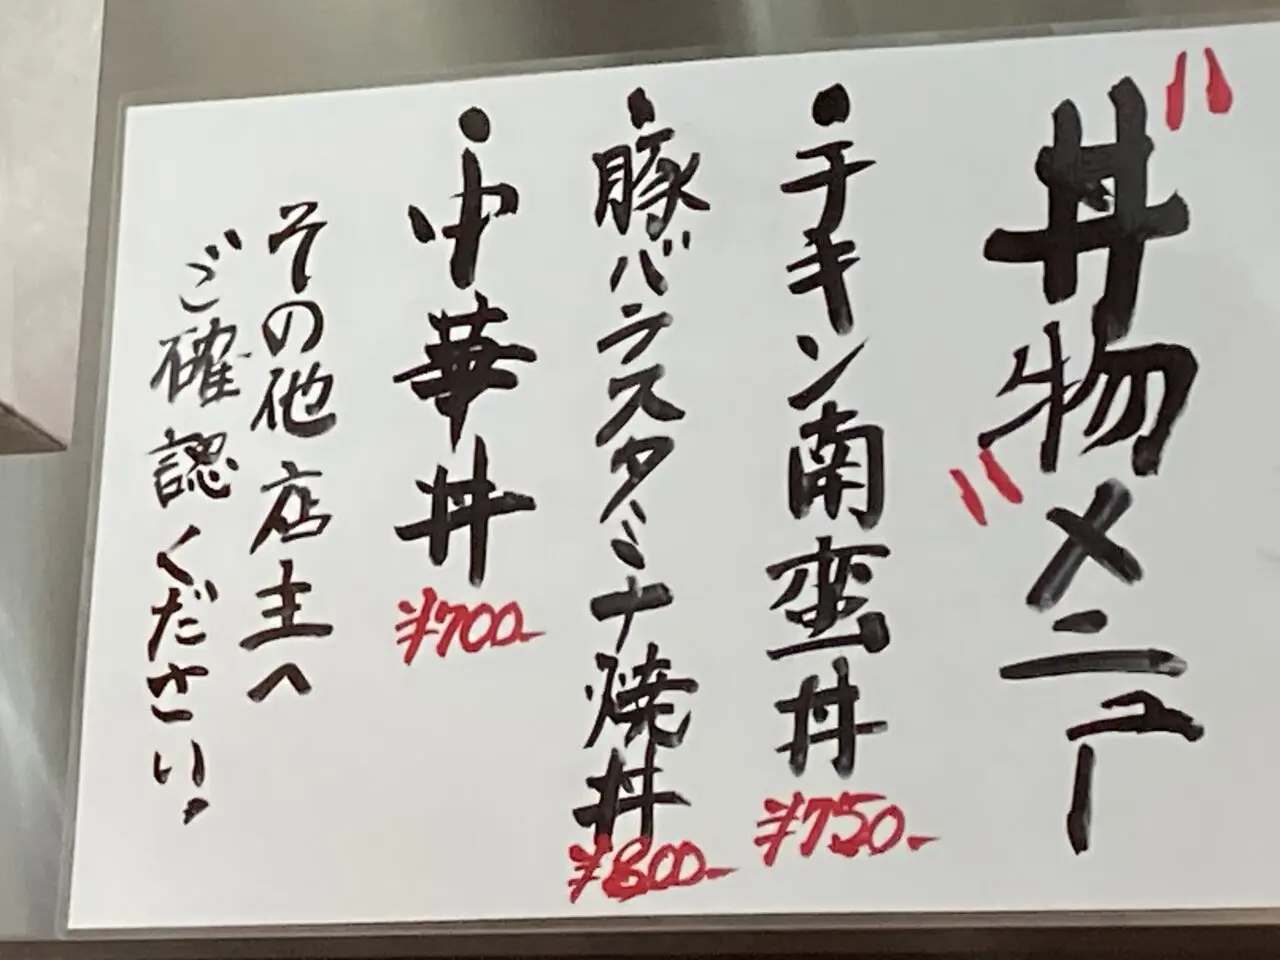 "丼物"メニュー
・チキン南蛮丼 ¥750-
・豚バラスタミナ焼丼 ¥800-
・中華丼 ¥700-
その他店主へ
ご確認ください!